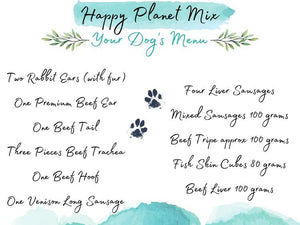 Happy Planet Mix
Your Dog's Menu
Two Rabbit Ears (with fur)
One Premium Beef Ear
One Beef Tail
Three Pieces Beef Trachea
One Beef Hoof
One Venison Long Sausage
Four Liver Sausages
Mixed Sausages 100 grams
Beef Tripe approx 100 grams
Fish Skin Cubes 80 grams
Beef Liver 100 grams